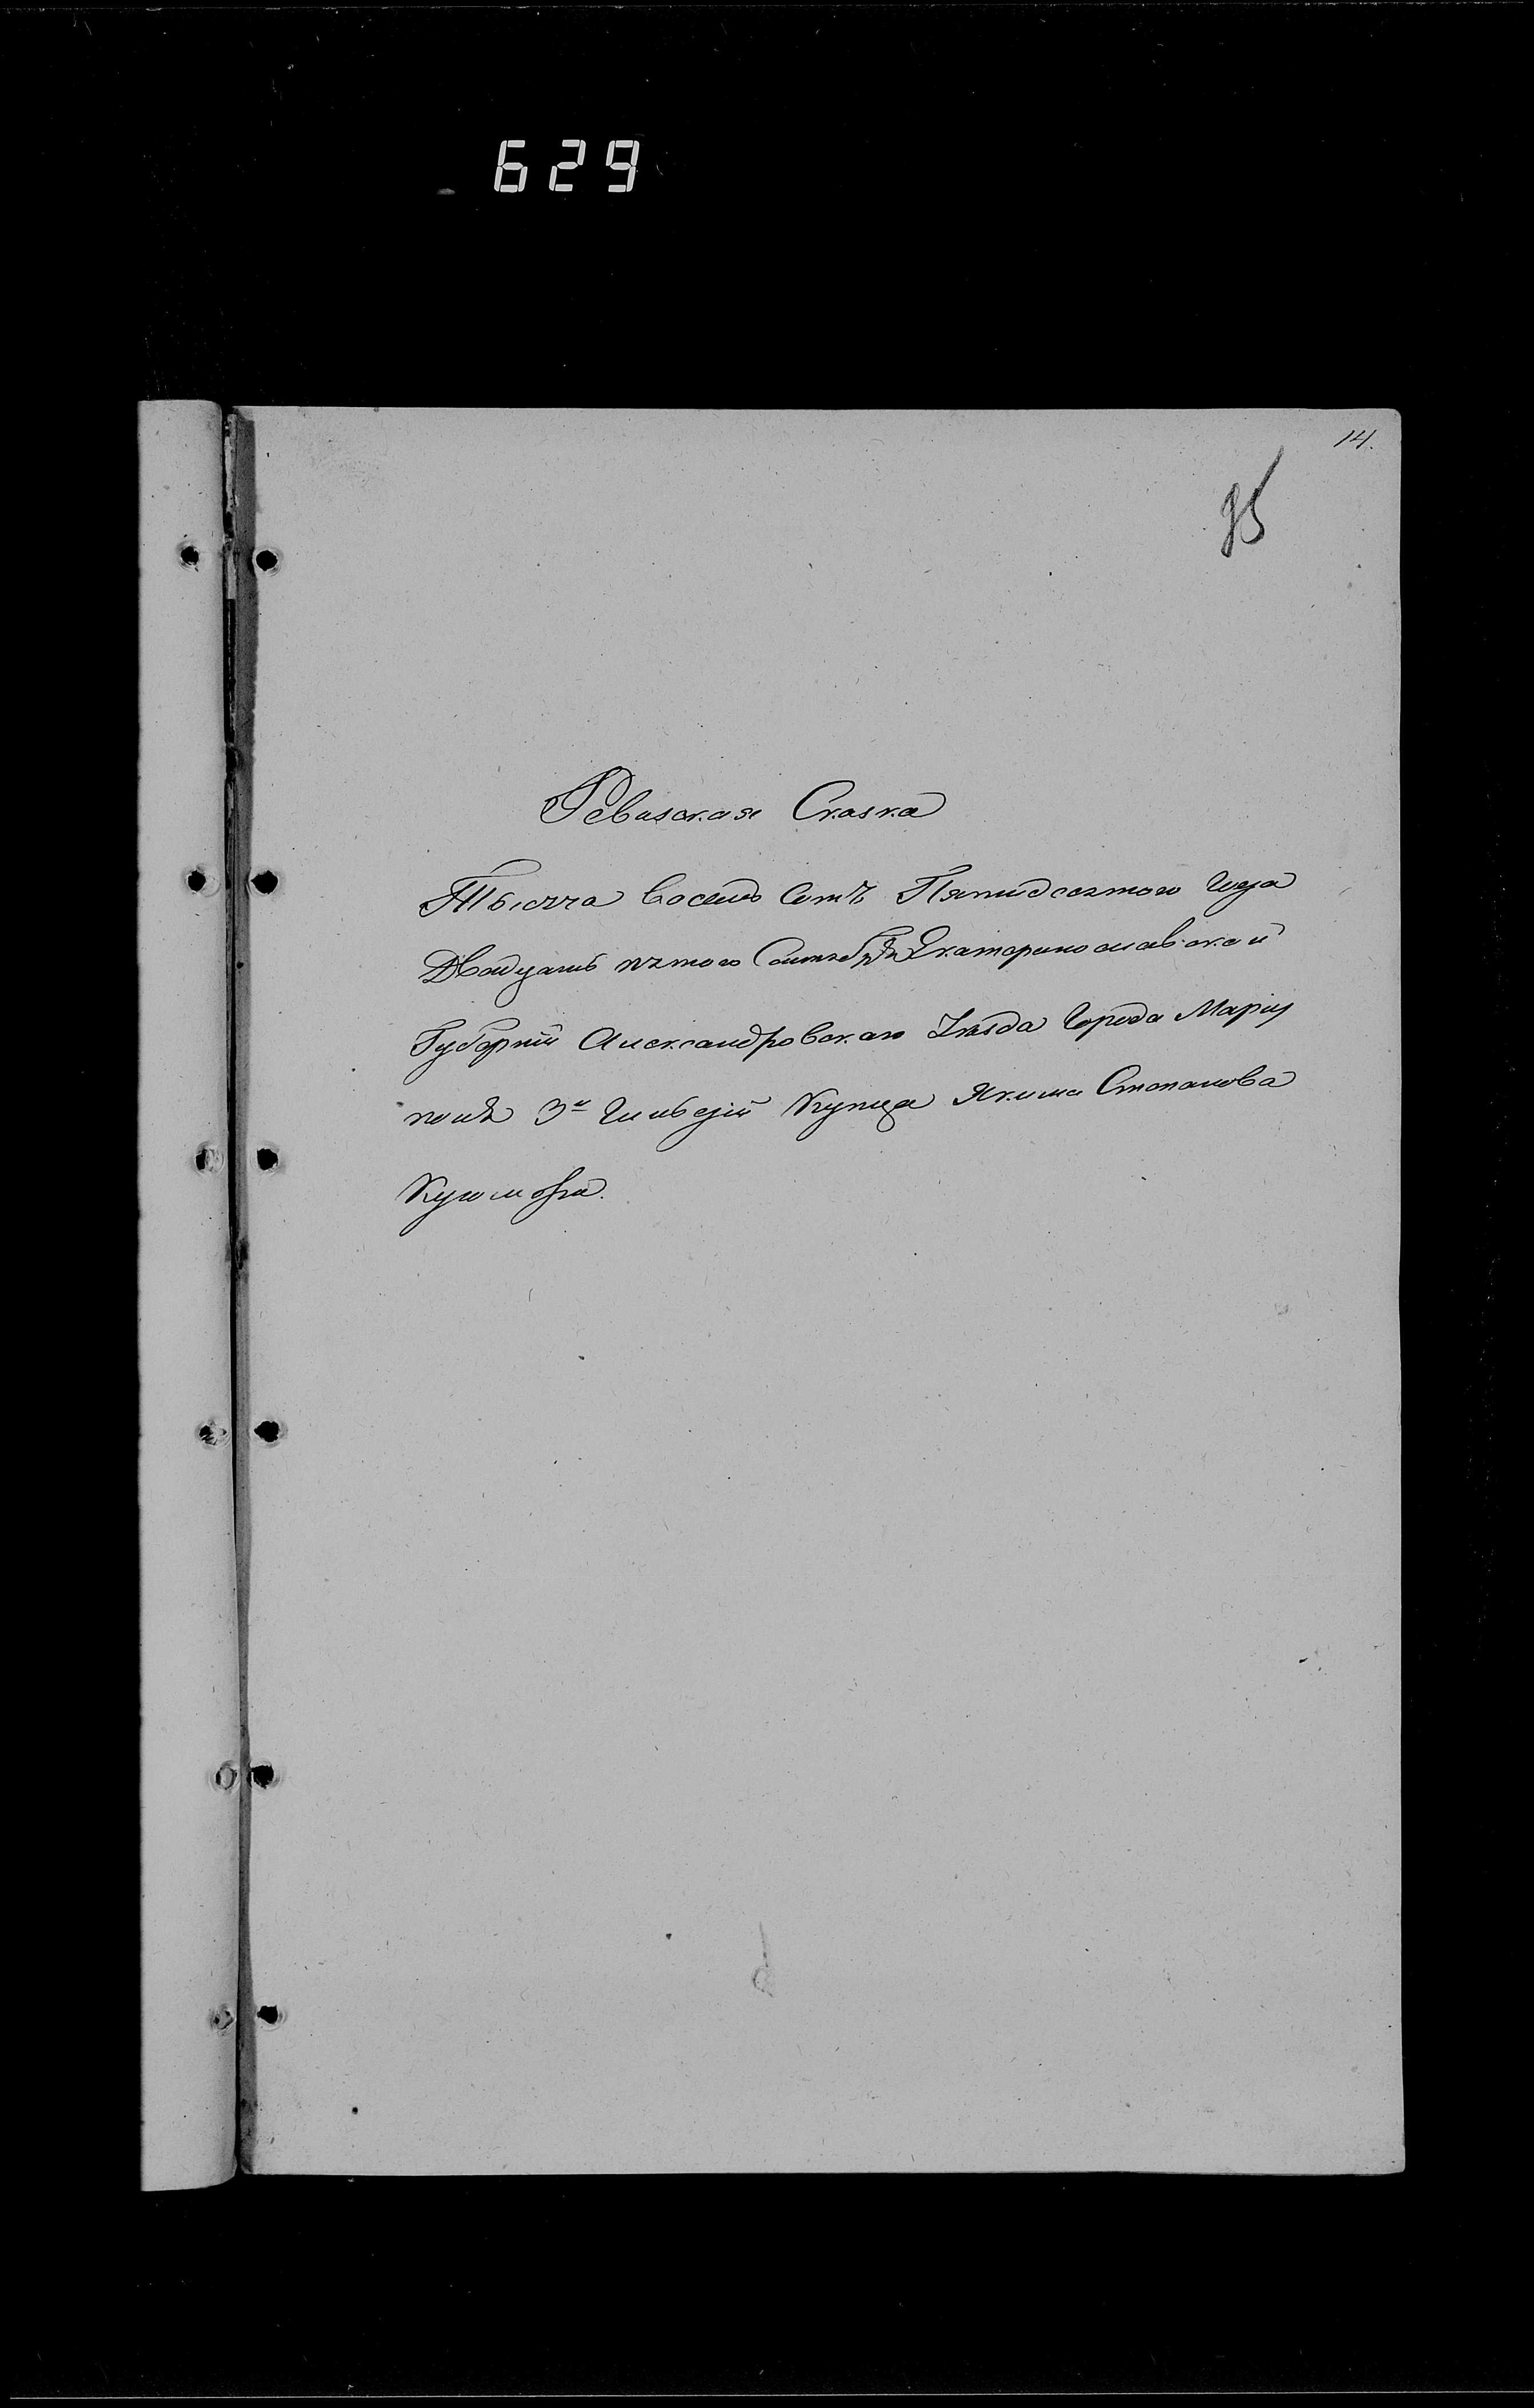 629
14.
95
Ревизская Сказка
Тысяча восемь Сотъ Пятидесятого года
Двадцать пятого Сентября Екатеринославской
Губерніи Александровскаго Уѣзда Города Мариу
поля 3й Гильдіи Купца Якима Степанова